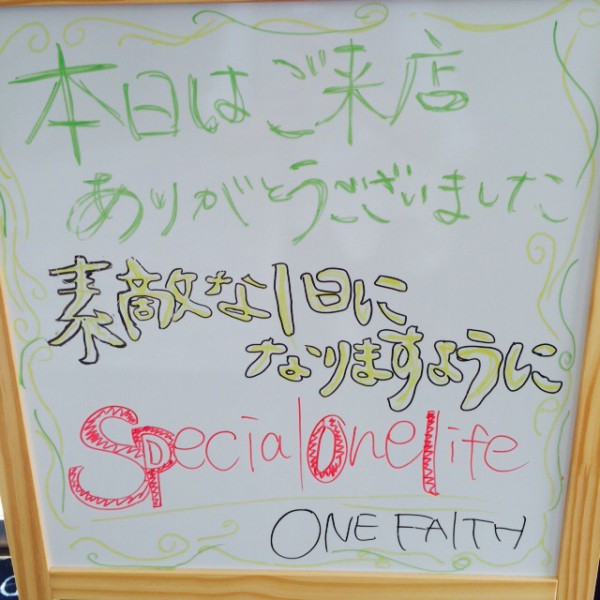 本日はご来店
ありがとうございました
素敵な1日に
なりますように
Special One life
ONE FAITH